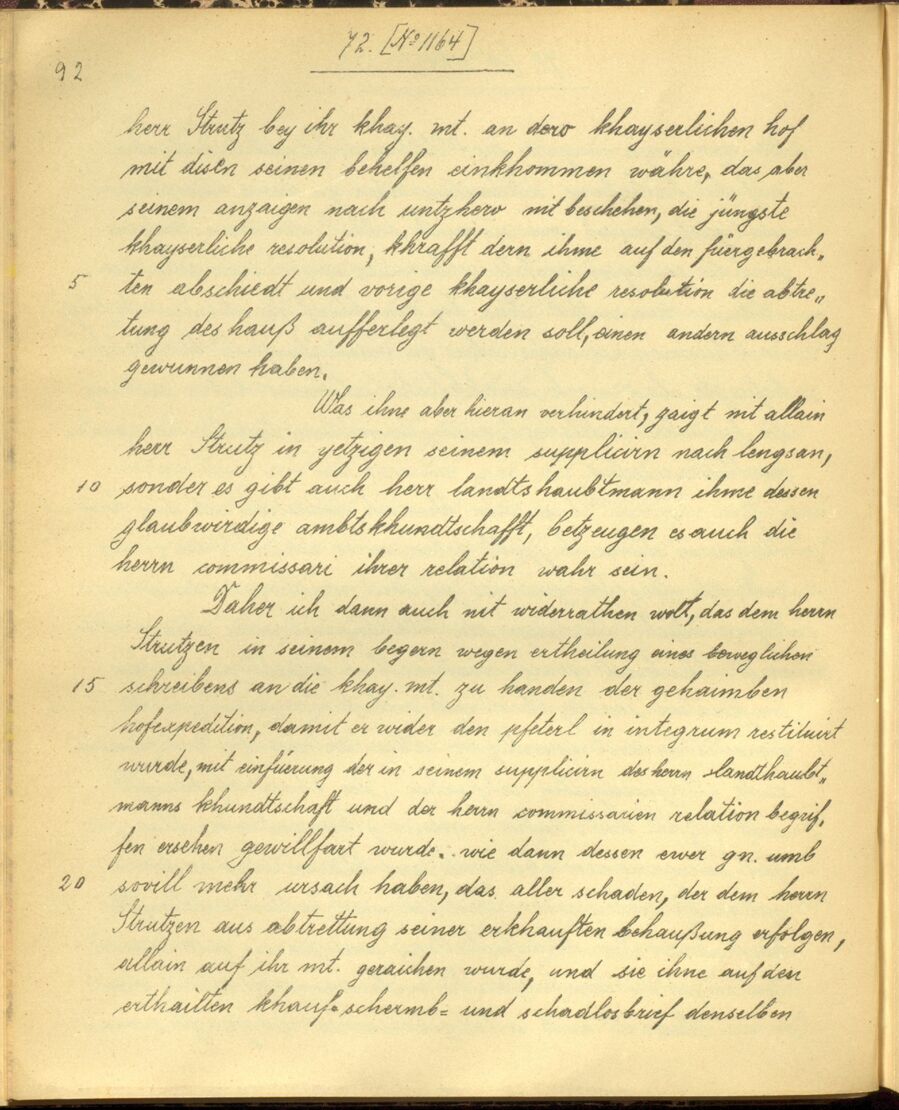 72. [No 1164]
92
herr Strutz bey ihr khay. mt. an dero khayserlichen hof
mit disen seinen behelfen einkhommen währe, das aber
seinem anzaigen nach untzhero nit beschehen, die jüngste
khayserliche resolution, khrafft dern ihme auf den fürgebrach„
5 ten abschiedt und vorige khayserliche resolution die abtre„
tung des hauß aufferlegt werden soll, einen andern ausschlag
gewunnen haben.
Was ihne aber hieran verhindert, zaigt nit allain
herr Strutz in yetzigen seinem supplicirn nach lengs an,
10 sonder es gibt auch herr landtshaubtmann ihme dessen
glaubwirdige ambtskhundtschafft, betzeugen es auch die
herrn commissari ihrer relation wahr sein.
Daher ich dann auch nit widerrathen wolt, das dem herrn
Strutzen in seinem begern wegen ertheilung eines beweglichen
15 schreibens an die khay. mt. zu handen der gehaimben
hofexpedition, damit er wider den pfeterl in integrum restituirt
wurde, mit einfüerung der in seinem supplicirn des herrn landthaubt„
manns khundtschaft und der herrn commissarien relation begrif„
fen ersehen gewillfart wurde. wie dann dessen ewer gn. umb
20 sovill mehr ursach haben, das aller schaden, der dem herrn
Strutzen aus abtrettung seiner erkhauften behaußung erfolgen,
allain auf ihr mt. geraichen wurde, und sie ihne auf den
erthailten khauf= schermb= und schadlosbrief denselben